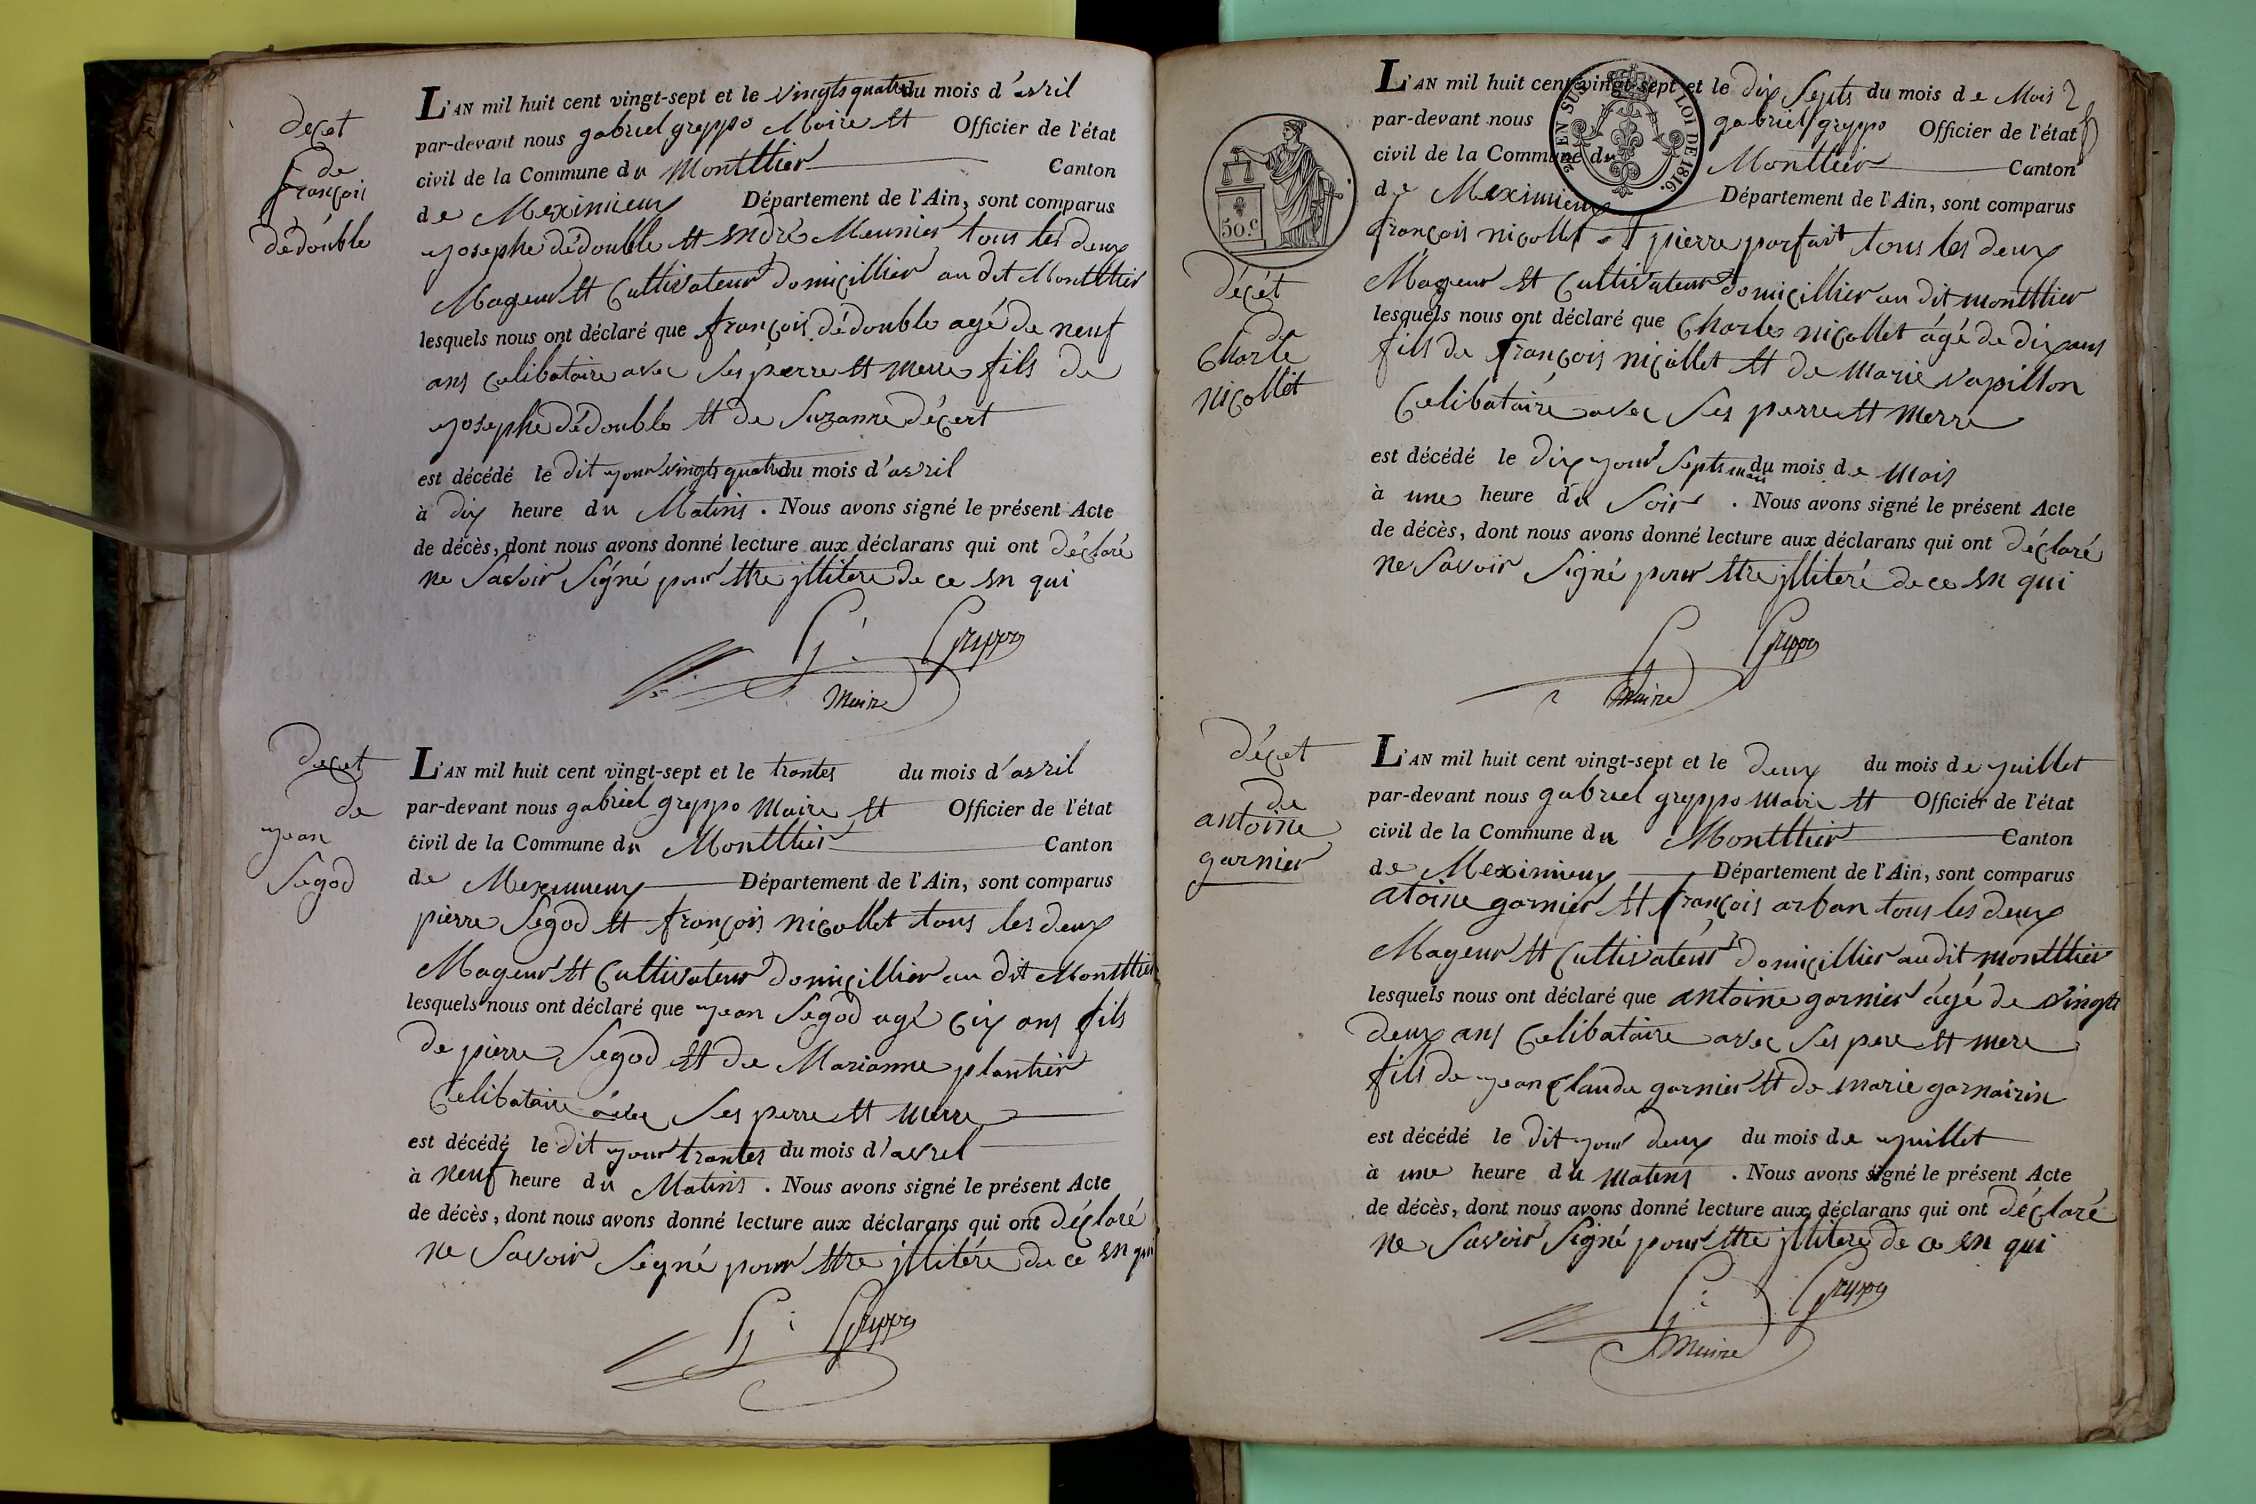 deçet
de
françois
dédouble
L'AN mil huit cent vingt-sept et le vingts quatre du mois d'avril
par-devant nous gabriel greppo Maire et Officier de l'état
civil de la Commune du Montllier Canton
de Meximieux Département de l'Ain, sont comparus
yosephe dédouble et endré Meunier tous les deux
Mageur et Cultivateur domicillier au dit Montllier
lesquels nous ont déclaré que françois dédouble agé de neuf
ans Celibataire avec ses perre et merre fils de
yosephe dédouble et de Suzanne déçert
est décédé le dit your vingts quatre du mois d'avril
à dix heure du Matins . Nous avons signé le présent Acte
de décès, dont nous avons donné lecture aux déclarans qui ont déclaré
ne Savoir Signé pour ettre illitere de ce en qui
G. Greppo
Maire
deçet
de
yean
Segod
L'AN mil huit cent vingt-sept et le trantes du mois d'avril
par-devant nous gabriel greppo Maire et Officier de l'état
civil de la Commune du Montllier Canton
de Meximieux Département de l'Ain, sont comparus
pierre Segod et françois niçollet tous les deux
Mageur et Cultivateur domicillier au dit Montllier
lesquels nous ont déclaré que yean Segod agé çix ans fils
de pierre Segod et de Marianne plantier
Celibataire avec Ses perre et merre
est décédé le dit your trantes du mois d'avrel
à neuf heure du Matins . Nous avons signé le présent Acte
de décès, dont nous avons donné lecture aux déclarans qui ont déclaré
ne Savoir Signé pour ettre illitére de ce en qui
G. Greppo
50.C
EN SUS LOI DE 1816.
déçét
de
Charle
niçollet
L'AN mil huit cent vingt-sept et le dix Septs du mois de Mais
par-devant nous gabriel greppo Officier de l'état
civil de la Commune du Montllier Canton
de Meximieux Département de l'Ain, sont comparus
françois niçollet et pierre parfait tous les deux
Mageur et Cultivateur domicillier au dit montllier
lesquels nous ont déclaré que Charles niçollet ágé de dix ans
fils de françois niçollet et de Marie vapillon
Celibataire avec Ses perre et merre
est décédé le dix your Septs mais du mois de Mais
à une heure du Soir . Nous avons signé le présent Acte
de décès, dont nous avons donné lecture aux déclarans qui ont déclaré
ne Savoir Signé pour ettre illiteré de ce en qui
G Greppo
Maire
déçet
de
antoine
garnier
L'AN mil huit cent vingt-sept et le deux du mois de yuillet
par-devant nous gabriel greppo Maire et Officier de l'état
civil de la Commune du Montllier Canton
de Meximieux Département de l'Ain, sont comparus
atoine garnier et françois arban tous les deux
Mageur et Cultivateur domicillier au dit montllier
lesquels nous ont déclaré que antoine garnier ágé de vingts
deux ans Celibataire avec Ses pere et mere
fils de yean Claude garnier et de marie garnairin
est décédé le dit your deux du mois de yuillet
à une heure du matins . Nous avons signé le présent Acte
de décès, dont nous avons donné lecture aux déclarans qui ont déclaré
ne Savoir Signé pour ettre illitere de ce en qui
G. Greppo
Maire